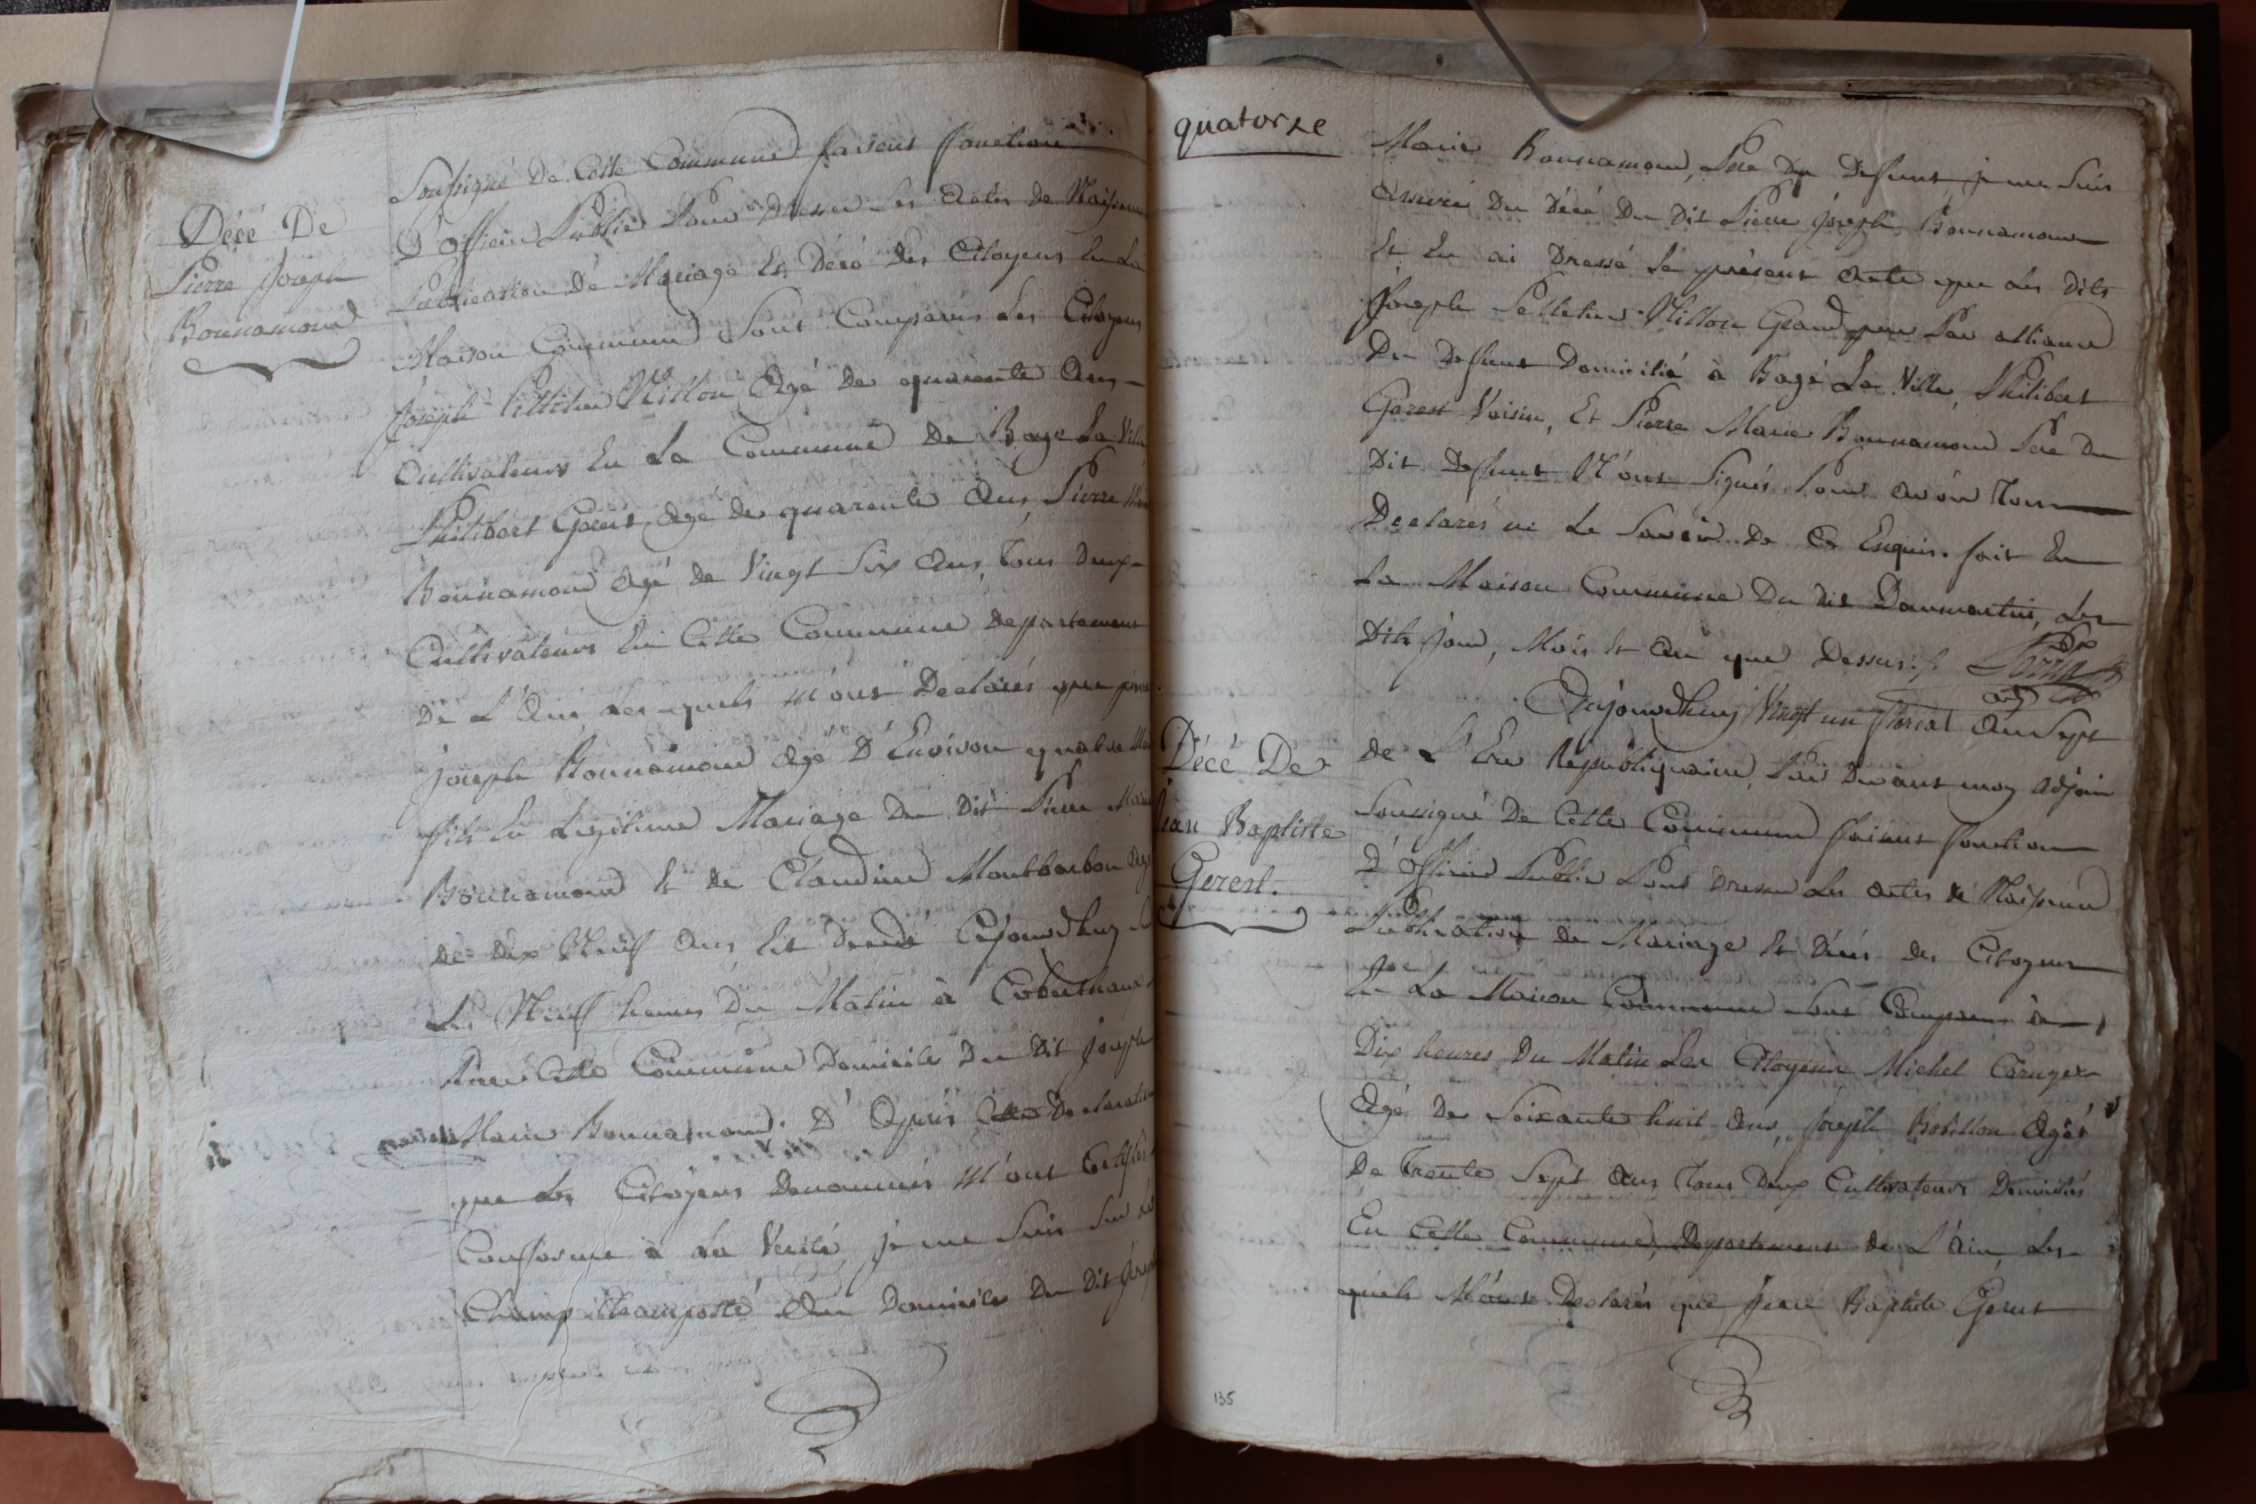 Décé De
Pierre Joseph
Bonnamour
Soussigné De Cette Commune faisent fonction
D'Officier Public Pour Dresser Les Actes de Naissance
Publication De Mariage Et Décé des Citoyens En La
Maison Commune Sont Comparus Les Citoyens
Joseph Pelletier Millon Agé de quarante Ans
Cultivateurs En La Commune De Bagé La Ville
Philibert Gerest agé de quarente Ans, Pierre
Bonnamour Agé de Vingt Six Ans, tous deux
Cultivateurs En Cette Commune departement
De L'Ain Les quels m'ont Declarés que
joseph Bonnamour Agé D'Environ quatre
fils En Legitime Mariage du dit Pierre Marie
Bonnamour Et de Claudine Montbarbon Agé
de dix Neuf Ans Est décedé Cejourdhuy
Les Neuf heures Du Matin à
Cette Commune Domicile Du Dit joseph
Marie Bonnamour. D'Après Cette Declaration
que Les Citoyens Denommés M'ont Certifiés
Conforme à La Verité, je me Suis Sur Le
Champ Transporté Au Domicile Du Dit joseph
quatorze
Marie Bonnamour, Père Du Defunt, je me Suis
Assuré Du Décé Du Dit Pierre joseph Bonnamour
Et En ai Dressé Le présent Acte que Les Dits
Joseph Pelletier Millon Grand père Par alliance
Du Defunt Domicilié à Bagé La Ville, Philibert
Gerest Voisin, Et Pierre Marie Bonnamour Père Du
Dit Defunt N'ont Signés Pour Avoir Tous
Declarés ne Le Savoir De Ce Enquis. fait En
La Maison Commune Du dit Dommartin, Les
Dits jour, Mois Et An que Dessus./.
Décé De
Jean Baptiste
Gerest.
Cejourdhuy Vingt un floréal An Sept
de L'Ere Republiquaine, Par Devant moy adjoin
Soussigné De Cette Commune faisent fonction
D'Officier Public Pour Dresser Les actes de Naissance
Publication de Mariage Et Décés des Citoyens
En La Maison Commune Sont Comparus à
Dix heures Du Matin Les Citoyens Michel
Agé De Soixante huit Ans, joseph Robillon Agé
De Trente Sept Ans Tous Deux Cultivateurs Domiciliés
En Cette Commune, Departement de L'Ain, Les
quels M'ont Declarés que Jean Baptiste Gerest
135